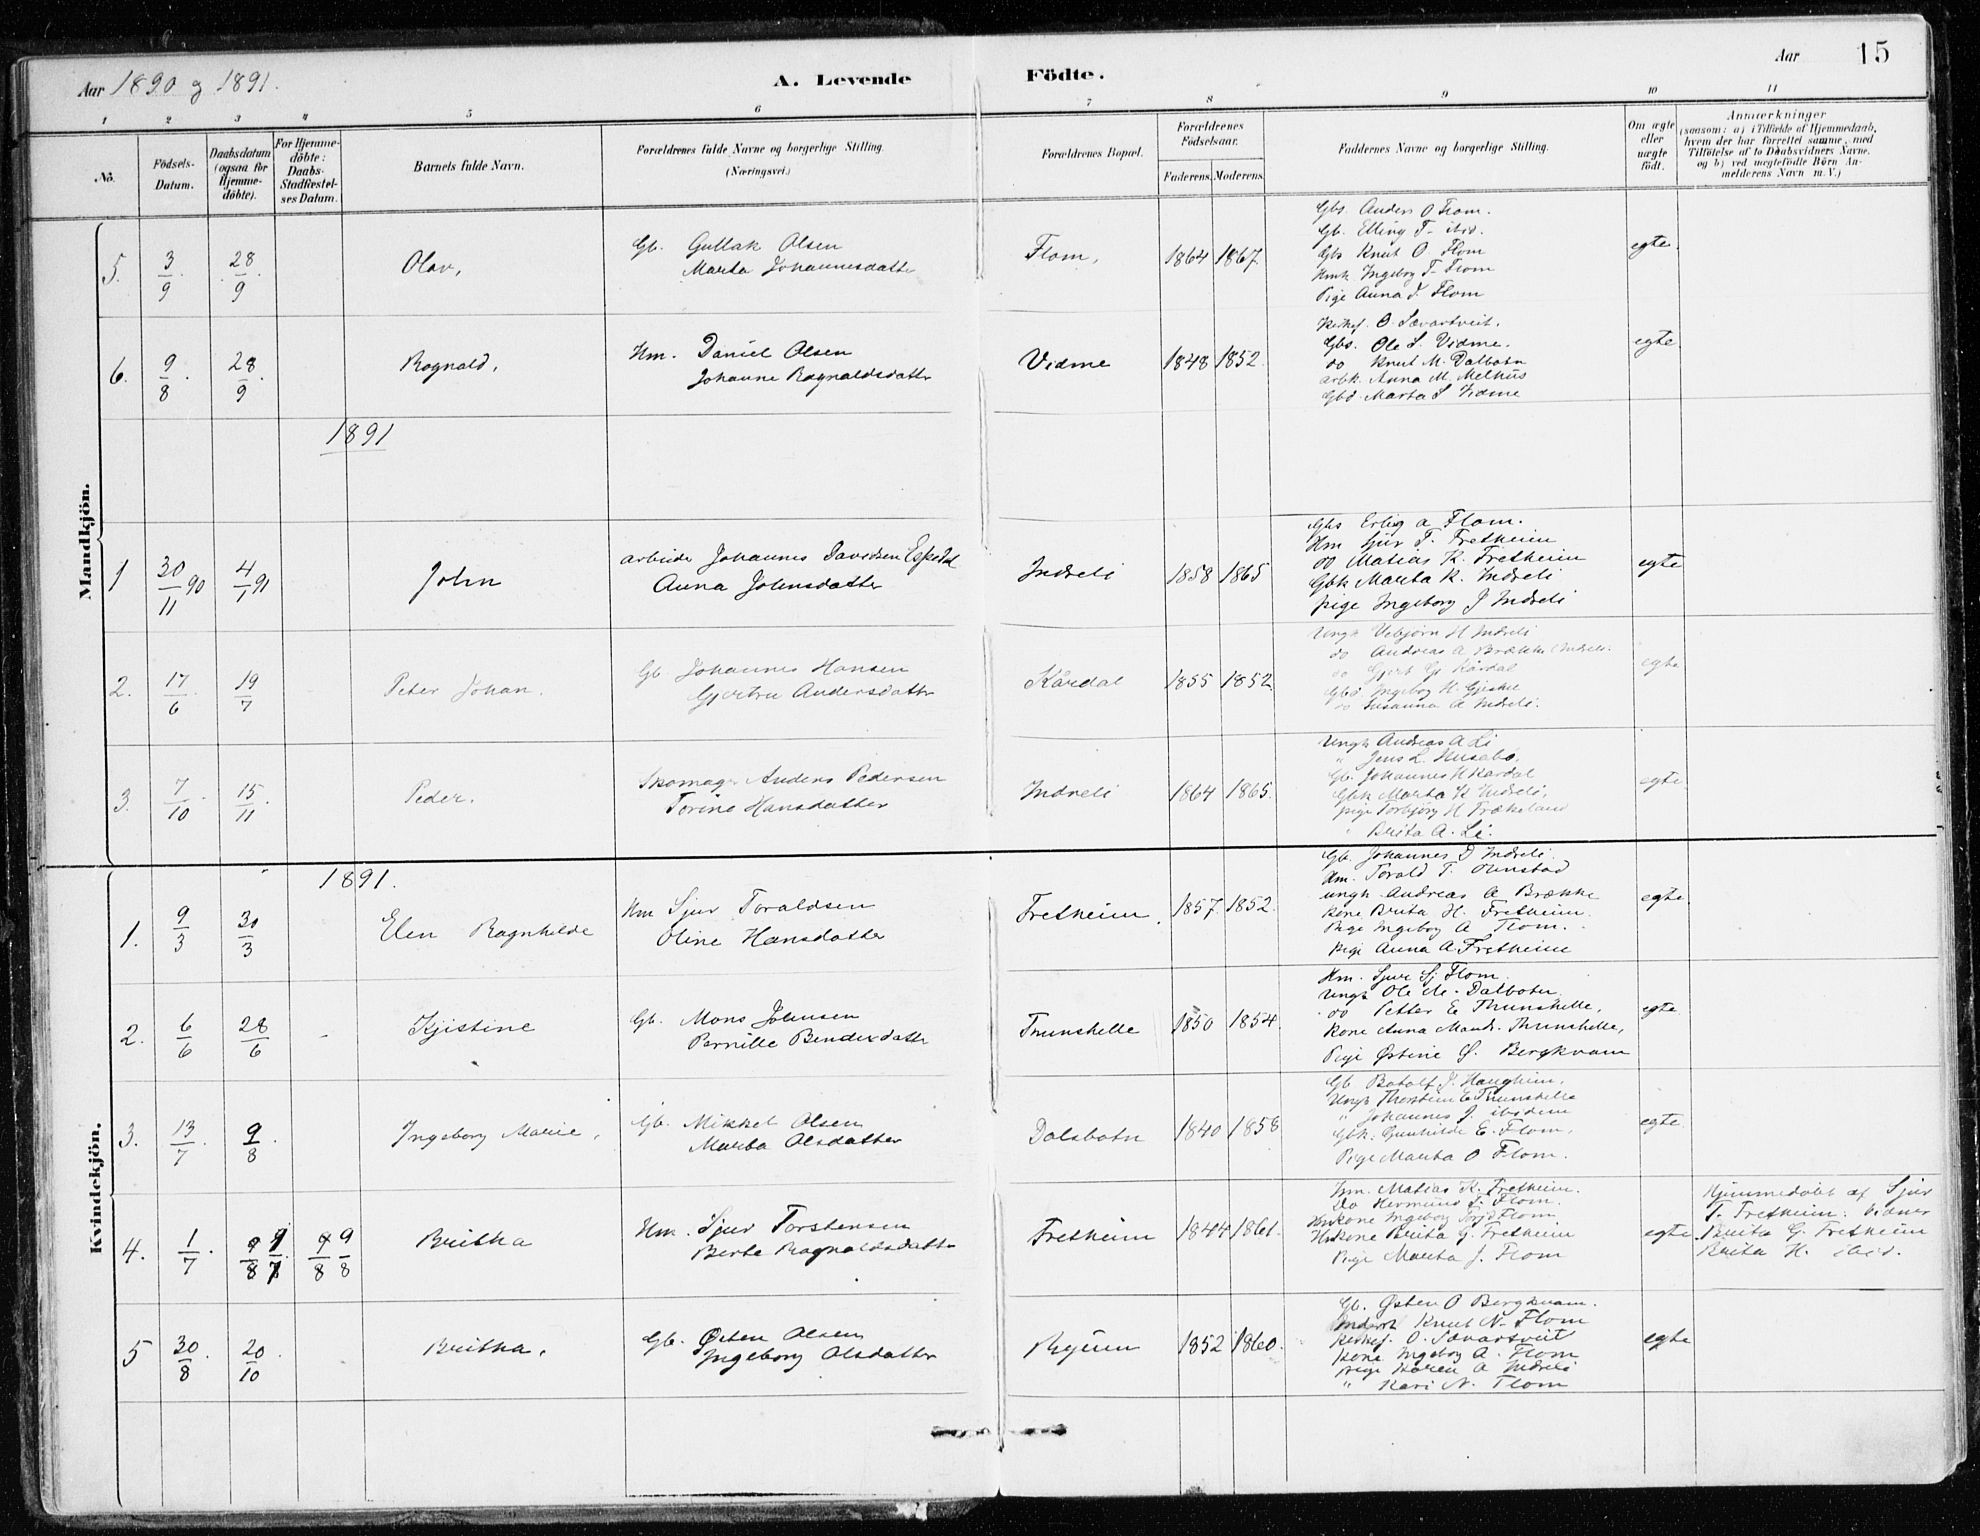 Aar 1890 og 1891.
A. Levende
Födte.
Aar
15
1
2
3
4
5
6
7
8
9
10
11
No.
Födsels-
Datum.
Daabsdatum
(ogsaa for
Hjemme-
döbte).
For Hjemme-
döbte:
Daabs-
Stadfæstel-
ses Datum.
Barnets fulde Navn.
Forældrenes fulde Navne og borgerlige Stilling.
(Næringsvei.)
Forældrenes Bopæl.
Forældrenes
Födselsaar.
Faderens. Moderens.
Faddernes Navne og borgerlige Stilling.
Om ægte
eller
uægte
födt.
Anmærkninger
(saasom: a) i Tilfælde af Hjemmedaab,
hvem der har forrettet samme, med
Tilföielse af to Daabsvidners Navne,
og b) ved uægtefödte Börn An-
melderens Navn m. V.)
Mandkjön.
5. 3/9 28/9 Olav,
Gb. Gullak Olsen
Marta Johannesdatter
Flom, 1864 1867.
Gbs. Anders O Flom.
Gb. Elling T- ibid.
Gbs Knut O. Flom
Hmk Ingeborg T- Flom
Pige Anna J. Flom
egte
6. 9/8 28/9 Ragnald,
Hm. Daniel Olsen
Johanne Ragnaldsdatter
Vidme 1848 1852.
Kirkes. O. Sævartveit,
Gbs. Ole S. Vidme.
do Knut M. Dalbotn
arbk. Anna M. Melhus
Gbd. Marta S Vidme
egte
1891
1 30/11 90 4/1 91 John
arbeider Johannes Davidsen Espedal
Anna Johnsdatter
Indreli 1858 1865
Gbs Erling A Flom.
Hm Sjur T. Fretheim
do Matias K. Fretheim
Gbk Marta K. Indreli.
pige Ingeborg J Indreli
egte
2. 17/6 19/7 Peter Johan.
Gb Johannes Hansen
Gjertru Andersdatter
Kårdal 1855 1852
Ungk Vebjørn H Indreli
do Andreas A Brække Indreli.
do Gjert G. Kårdal
Gbd Ingeborg H.
do Susanna A Indreli.
egte
3. 7/10 15/11 Peder.
Skomager Anders Pedersen
Torine Hansdatter
Indreli 1864 1865.
Ungk Andreas A Li
" Jens L. Husebø.
Gb. Johannes H Kardal
Gbk Marta K Indreli,
pige Torbjørg H Frækeland
" Brita A. Li.
egte
Kvindekjön.
1891.
1. 9/3 30/3 Elen Ragnhilde
Hm Sjur Toraldsen
Oline Hansdatter
Fretheim. 1857. 1852.
Gb. Johannes D Indreli.
Hm. Torald T. Ølnstad
ungk. Andreas A Brække
kone Brita H. Fretheim.
Pige Ingeborg A Flom.
pige Anna A Fretheim
egte.
2. 6/6 28/6 Kjistine
Gb. Mons Johnsen
Pernille Bendixdatter
Trunshelle 1850 1854.
Hm. Sjur Sj Flom
Ungk Ole M. Dalbotn
do Petter E Thunshelle,
kone Anna Mands. Thrunshelle,
Pige Østine Ø. Bergkvam
egte
3. 13/7 9/8 Ingeborg Marie,
Gb. Mikkel Olsen
Marta Olsdatter
Dalsbotn 1840 1858
Gb Botolf J. Haugheim,
Ungk Thorstein E Trunshelle
" Johannes J. ibidem
Gbk. Gunhilde E. Flom,
Pige Marta O Flom.
egte.
4. 1/7 9/8 9/8 Britha
Hm. Sjur Torstensen
Berte Ragnaldsdatter
Fretheim 1844 1861.
Hm. Matias K. Fretheim.
Do Hermund T. Flom.
Hmkone Ingeborg Flom
Hkone Brita G. Fretheim
Pige Marta J. Flom
egte.
Hjemmedøbt af Sjur
T. Fretheim. Vidner
Brita G. Fretheim
Brita H. ibid.
5 30/8 20/10 Britha,
Gb. Østen Olsen
Ingeborg Olsdatter
Ryum 1852 1860.
Gb. Østen O Bergkvam.
Inderst Knut N- Flom
Kirkes. O. Sævartveit
Kone Ingeborg A. Flom
pige Karen A Indreli
" Kari N. Flom
egte